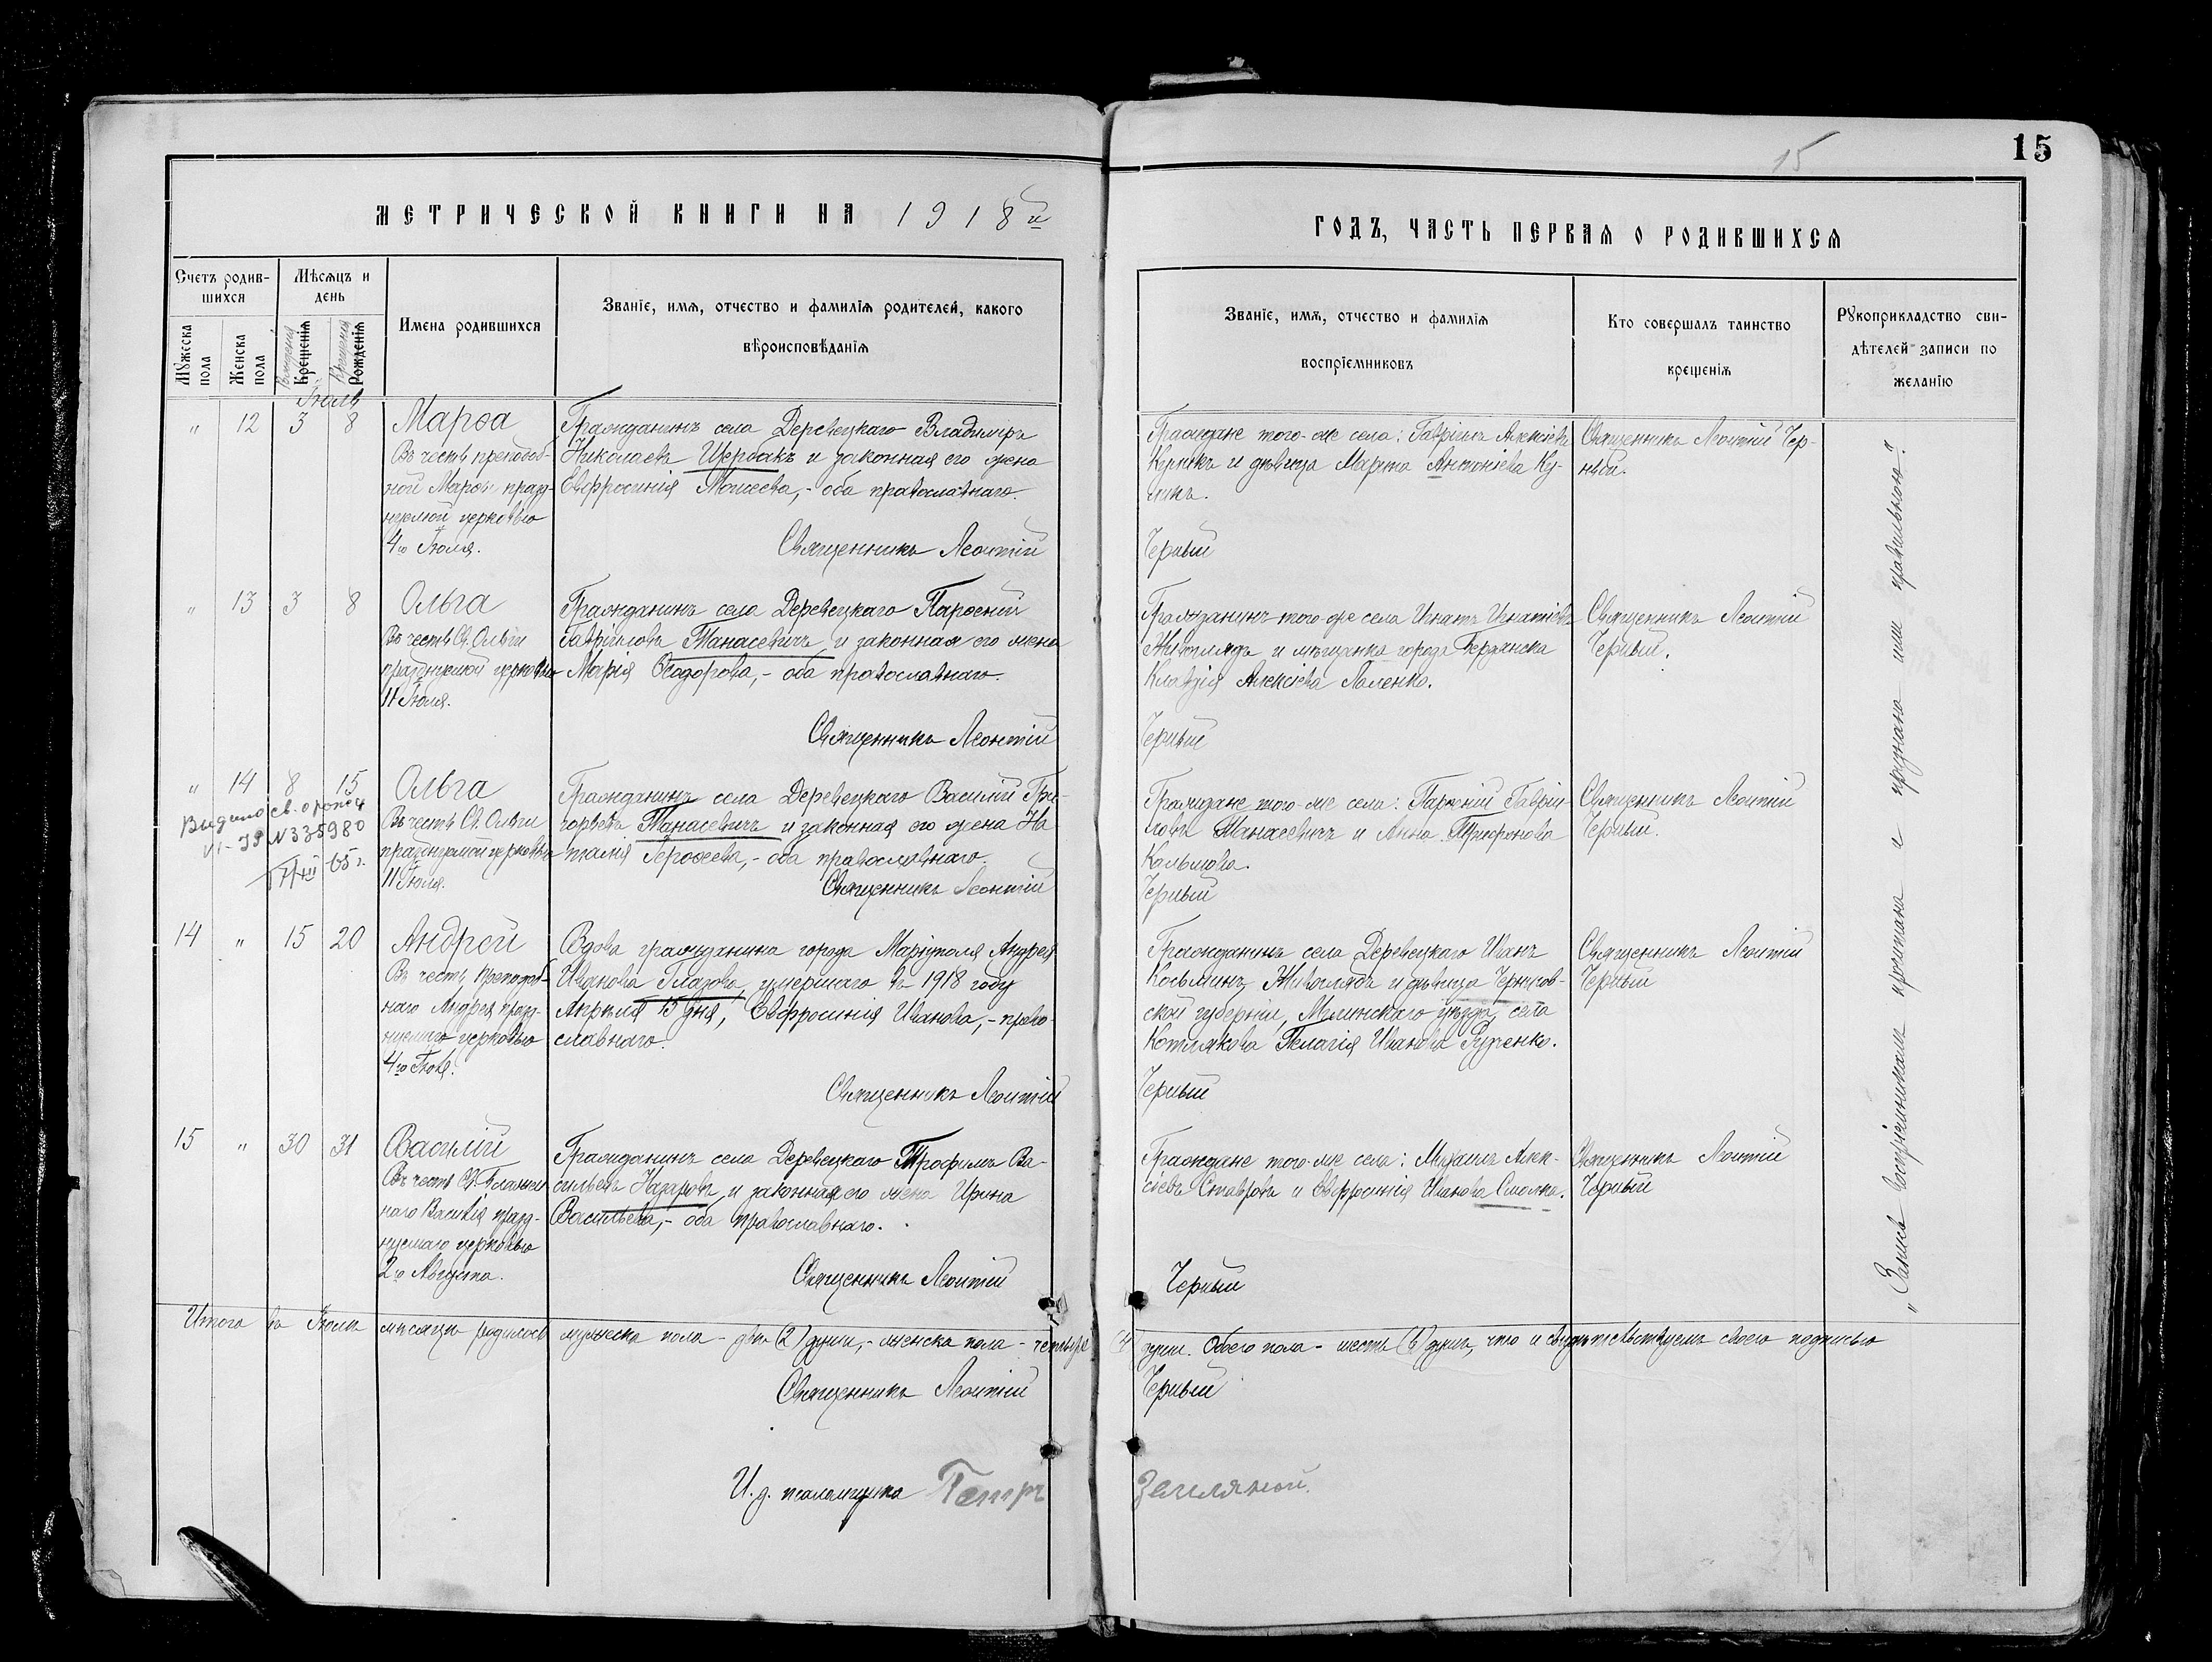 15
15
МЕТРИЧЕСКОЙ КНИГИ НА 1918й
ГОДЪ, ЧАСТЬ ПЕРВАЯ О РОДИВШИХСЯ
Счетъ родив-
шихся
Мѣсяцъ и
день
Мужеска
пола
Женска
пола
Рожденія
Крещенія
Крещенія
Рожденія
Имена родившихся
Званіе, имя, отчество и фамилія родителей, какого
вѣроисповѣданія
Званіе, имя, отчество и фамилія
воспріемниковъ
Кто совершалъ таинство
крещенія
Рукоприкладство сви-
дѣтелей записи по
желанію
Іюль
" 12 3 8
Марѳа
Въ честь преподоб-
ной Марѳы празд-
нуемой церковью
4го Іюля.
Гражданинъ села Деревецкаго Владимиръ
Николаевъ Щербакъ и законная его жена
Евфросинія Моисеева, - оба православнаго.
Священникъ Леонтій
Граждане того-же села: Гавріилъ Алексіевъ
и дѣвица Марѳа Антоніева Ку-
Черный
Священникъ Леонтій Чер-
ный.
" 13 3 8
Ольга
Въ честь Св. Ольги
празднуемой церковью
11 Іюля.
Гражданинъ села Деревецкаго Парѳеній
Гавріиловъ Танасевичъ и законная его жена
Марія Ѳеодорова, - оба православнаго.
Священникъ Леонтій
Гражданинъ того-же села Игнатъ Игнатіевъ
Живоглядъ и мѣщанка города Бердянска
Клавдія Алексіева Паленко.
Черный
Священникъ Леонтій
Черный.
" 14 8 15
Видано св. о рожд
VI-ЯР N 335980
65 г.
Ольга
Въ честь Св. Ольги
празднуемой церковью
11 Іюля.
Гражданинъ села Деревецкаго Василій Гри-
горьевъ Танасевичъ и законная его жена На-
талія Героѳеева, - оба православнаго.
Священникъ Леонтій
Граждане того-же села: Парѳеній Гавріи-
ловъ Танасевичъ и Анна Трифонова
Кальмова.
Черный
Священникъ Леонтій
Черный.
14 " 15 20
Андрей
Въ честь Преподоб-
наго Андрея празд-
нуемаго церковью
4го Іюля.
Вдова гражданина города Маріуполя Андрея
Иванова Глазова, умершаго въ 1918 году
Апрѣля 15 дня, Евфросинія Иванова, - право-
славнаго.
Священникъ Леонтій
Гражданинъ села Деревецкаго Иванъ
Косьминъ Живоглядъ и дѣвица Чернигов-
ской губерніи, Мглинскаго уѣзда, села
Котлякова Пелагія Иванова Руденко.
Черный
Священникъ Леонтій
Черный
15 " 30 31
Василій
Въ честь Св. Блажен-
наго Василія празд-
нуемаго церковью
2го Августа.
Гражданинъ села Деревецкаго Трофимъ Ва-
сильевъ Назаровъ и законная его жена Ирина
Васильева, - оба православнаго.
Священникъ Леонтій
Граждане того-же села: Михаилъ Алек-
сіевъ Ставровъ и Евфросинія Иванова Смолка.
Черный
Священникъ Леонтій
Черный
Итого въ Іюлѣ мѣсяцѣ родилось мужеска пола - двѣ (2) души, - женска пола - четыре (4) души. Обоего пола - шесть (6) душъ, что и свидѣтельствуемъ своею подписью
Священникъ Леонтій Черный
И. д. псаломщика Петръ Земляной.
„Запись воспріемниками прочитана и признана ими правильною".